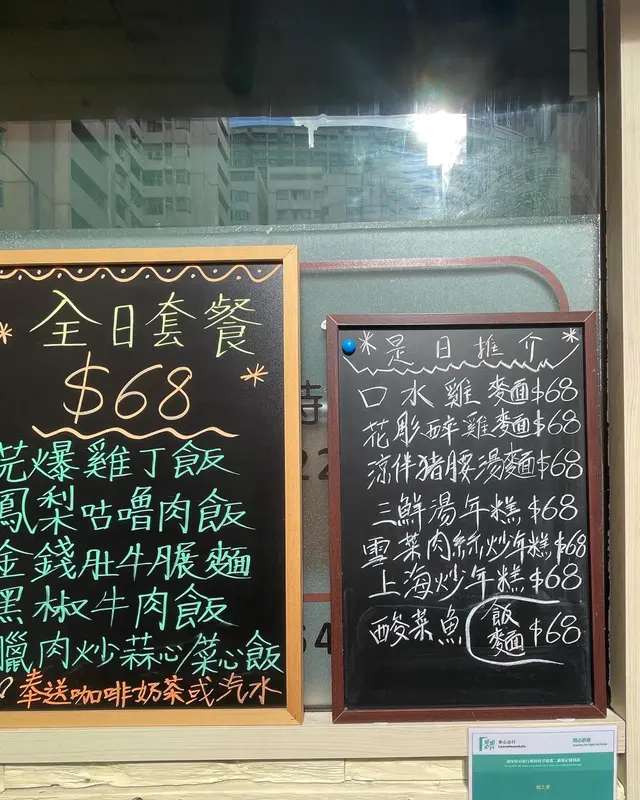 全日套餐
$68
芫爆雞丁飯
鳳梨咕嚕肉飯
金錢肚牛𦟌麵
黑椒牛肉飯
臘肉炒蒜心/菜心飯
奉送咖啡奶茶或汽水
是日推介
口水雞麵$68
花彫醉雞麵$68
涼伴猪腰湯麵$68
三鮮湯年糕$68
雪菜肉絲炒年糕$68
上海炒年糕$68
酸菜魚飯麵$68
安心出行
LeaveHomeSafe